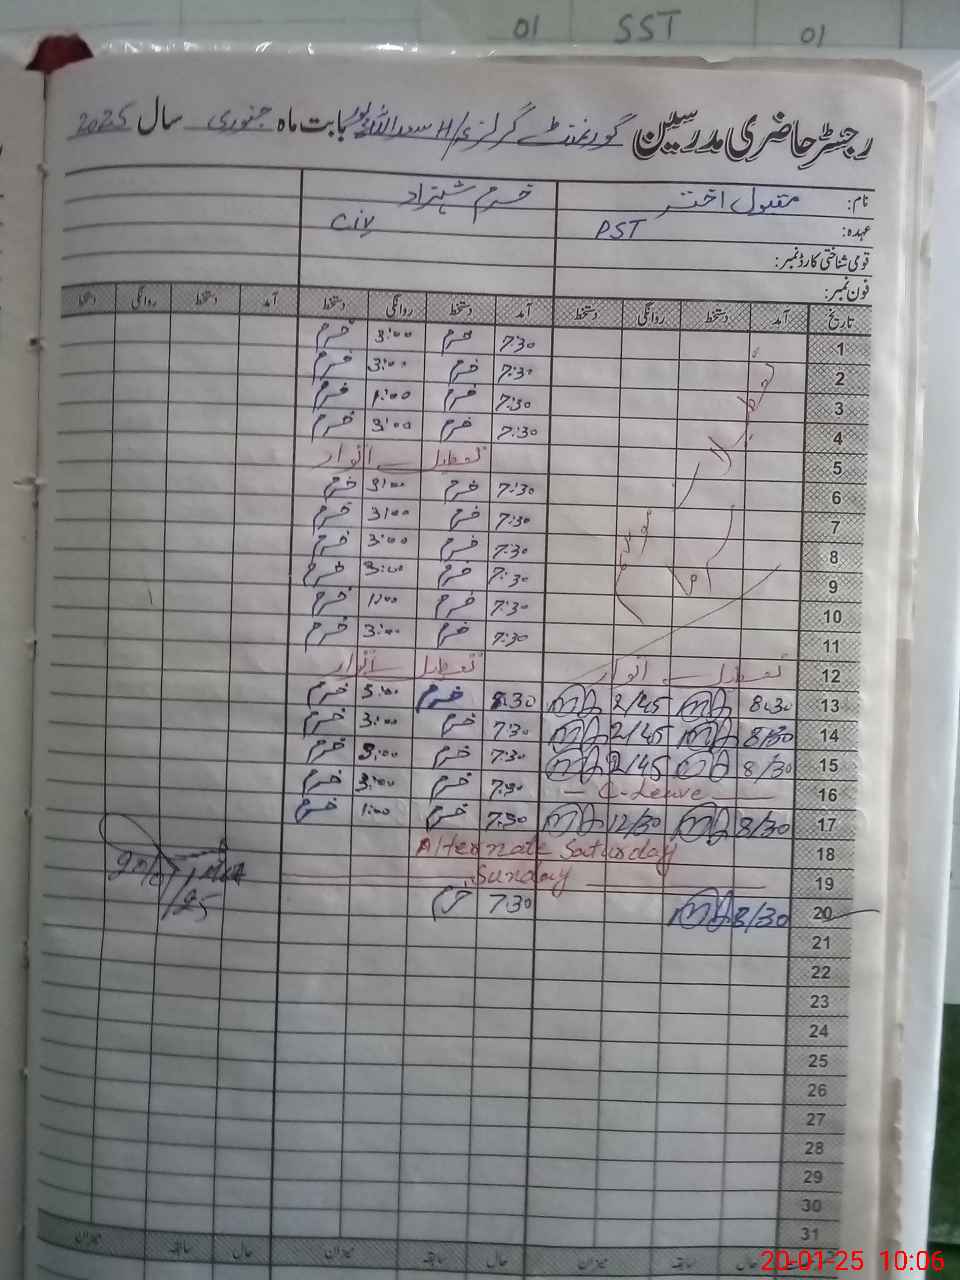 01 SST 01
رجسٹر حاضری مدرسین گورنمنٹ گرلز H/S سعد اللہ پور بابت ماہ جنوری سال 2025
نام: مقبول اختر خرم شہزاد
عہدہ: PST Civ
قومی شناختی کارڈ نمبر:
فون نمبر:
تاریخ آمد دستخط روانگی دستخط آمد دستخط روانگی دستخط آمد دستخط روانگی دستخط
1 7:30 خرم 3:00 خرم
2 7:30 خرم 3:00 خرم
3 7:30 خرم 1:00 خرم
4 7:30 خرم 3:00 خرم
5 تعطیل اتوار
6 7:30 خرم 3:00 خرم
7 7:30 خرم 3:00 خرم
8 7:30 خرم 3:00 خرم
9 7:30 خرم 3:00 خرم
10 7:30 خرم 1:00 خرم
11 7:30 خرم 3:00 خرم
12 تعطیل اتوار تعطیل اتوار
13 8:30 2/45 8:30 خرم 3:00 خرم
14 8/30 2/45 7:30 خرم 3:00 خرم
15 8/30 2/45 7:30 خرم 3:00 خرم
16 C-Leave 7:30 خرم 3:00 خرم
17 8/30 12/30 7:30 خرم 1:00 خرم
18 Alternate Saturday
19 Sunday
20 8/30 7:30
21
22
23
24
25
26
27
28
29
30
31
حال سابقہ میزان حال سابقہ میزان حال سابقہ میزان
20-01-25 10:06